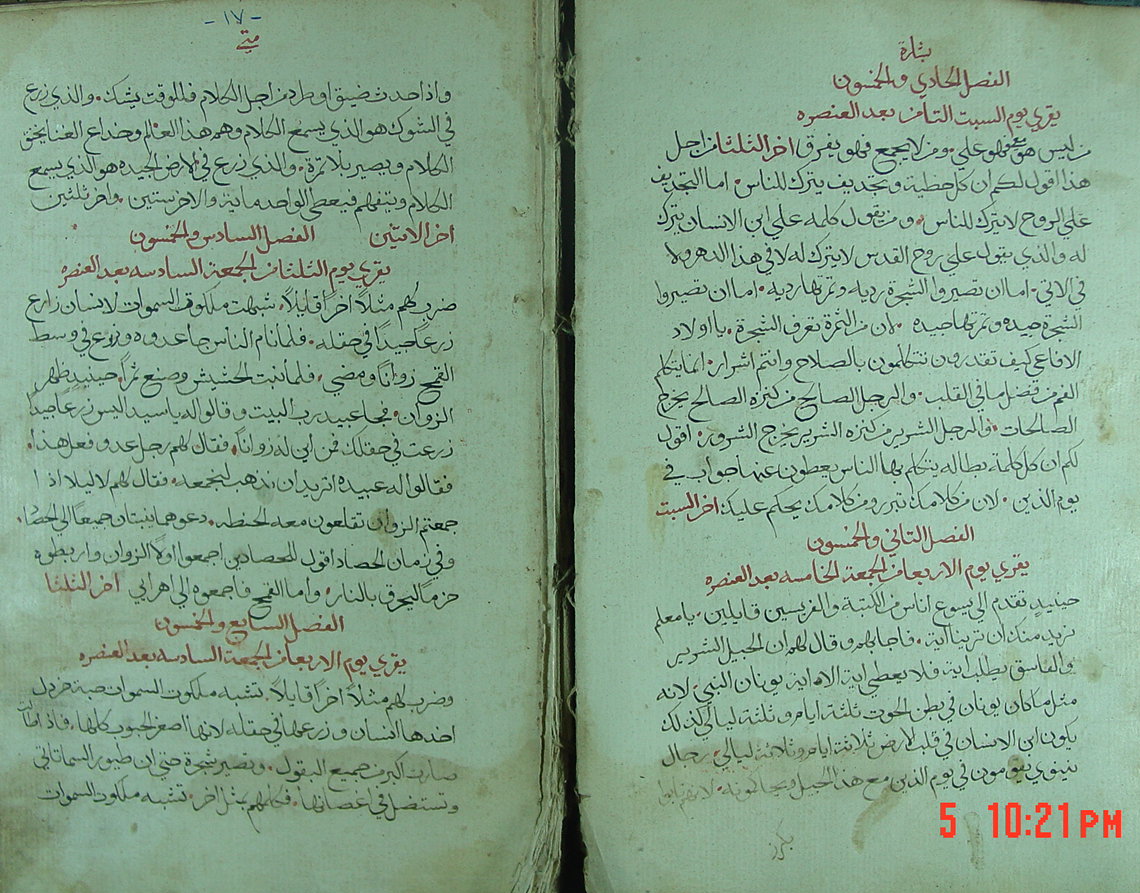 بشارة
الفصل الحادي والخمسون
يقري يوم السبت التامن بعد العنصره
من ليس هو معي فهو علي. ومن لا يجمع فهو يفرق اخر الثلثا من اجل
هذا اقول لكم ان كل خطية وتجديف يترك للناس. اما التجديف
علي الروح لا يترك للناس. ومن يقول كلمه علي ابن الانسان يترك
له والذي يقول علي روح القدس لا يترك له لا في هذا الدهر ولا
في الاتي. اما ان تصيروا الشجرة رديه وثمرتها رديه. اما ان تصيروا
الشجرة جيده وثمرتها جيده. لان من الثمرة تعرف الشجرة. يا اولاد
الافاعي كيف تقدرون تتكلمون بالصلاح وانتم اشرار. انما يتكلم
الفم من فضل ما في القلب. والرجل الصالح من كنزه الصالح يخرج
الصالحات. والرجل الشرير من كنزه الشرير يخرج الشرور. اقول
لكم ان كل كلمة بطاله يتكلم بها الناس يعطون عنها جواب في
يوم الدين. لان من كلامك تتبرر ومن كلامك يحكم عليك. اخر السبت
الفصل التاني والخمسون
يقري يوم الاربعا من الجمعة الخامسه بعد العنصره
حينيد تقدم الي يسوع اناس من الكتبة والفريسين قايلين. يا معلم
نريد منك ان ترينا اية. فاجابهم وقال لهم ان الجيل الشرير
والفاسق يطلب اية فلا يعطي اية الا اية يونان النبي لانه
مثل ما كان يونان في بطن الحوت ثلثة ايام وثلثة ليالي كذلك
يكون ابن الانسان في قلب الارض ثلاثة ايام وثلاثة ليالي. رجال
نينوي يقومون في يوم الدين مع هذا الجيل ويحاكمونه. لانهم
-١٧-
متي
واذا حدث ضيق او طرد من اجل الكلام فللوقت يشك. والذي زرع
في الشوك هو الذي يسمع الكلام وهم هذا العالم وخداع الغنا يخنق
الكلام ويصير بلا ثمرة. والذي زرع في الارض الجيده هو الذي يسمع
الكلام ويتفهم فيعطي الواحد ماية والاخر ستين. واخر ثلثين
اخر الاتنين الفصل السادس والخمسون
يقري يوم الثلثا من الجمعة السادسه بعد العنصره
ضرب لهم مثلاً اخر قايلاً. شبهت ملكوت السموات لانسان زارع
زرعاً جيداً في حقله. فلما نام الناس جا عدوه وزرع في وسط
القمح زواناً ومضي. فلما نبت الحشيش وصنع ثمراً. حينيد ظهر
الزوان. فجا عبيد رب البيت وقالوا له يا سيد اليس زرعاً جيداً
زرعت في حقلك فمن اين له زواناً. فقال لهم رجل عدو فعل هذا.
فقالوا له عبيده اتريد ان نذهب لنجمعه. فقال لهم لا ليلا اذا
جمعتم الزوان تقلعون معه الحنطه. دعوهما ينبتان جميعاً الي الحصاد.
وفي زمان الحصاد اقول للحصادين اجمعوا اولاً الزوان واربطوه
حزماً ليحرق بالنار. واما القمح فاجمعوه الي اهرايي اخر الثلثا
الفصل السابع والخمسون
يقري يوم الاربعا من الجمعة السادسه بعد العنصره
وضرب لهم مثلاً اخر قايلاً. تشبه ملكوت السموات حبة خردل
اخدها انسان وزرعها في حقله لانها اصغر الحبوب كلها. فاذا طالت
صارت اكبر من جميع البقول. وتصير شجرة حتي ان طيور السما تاتي
وتستضل في اغصانها. فكلمهم بمثل اخر. تشبه ملكوت السموات
5 10:21PM